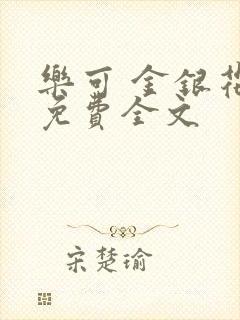 樂可 金銀花
免費全文
宋楚瑜